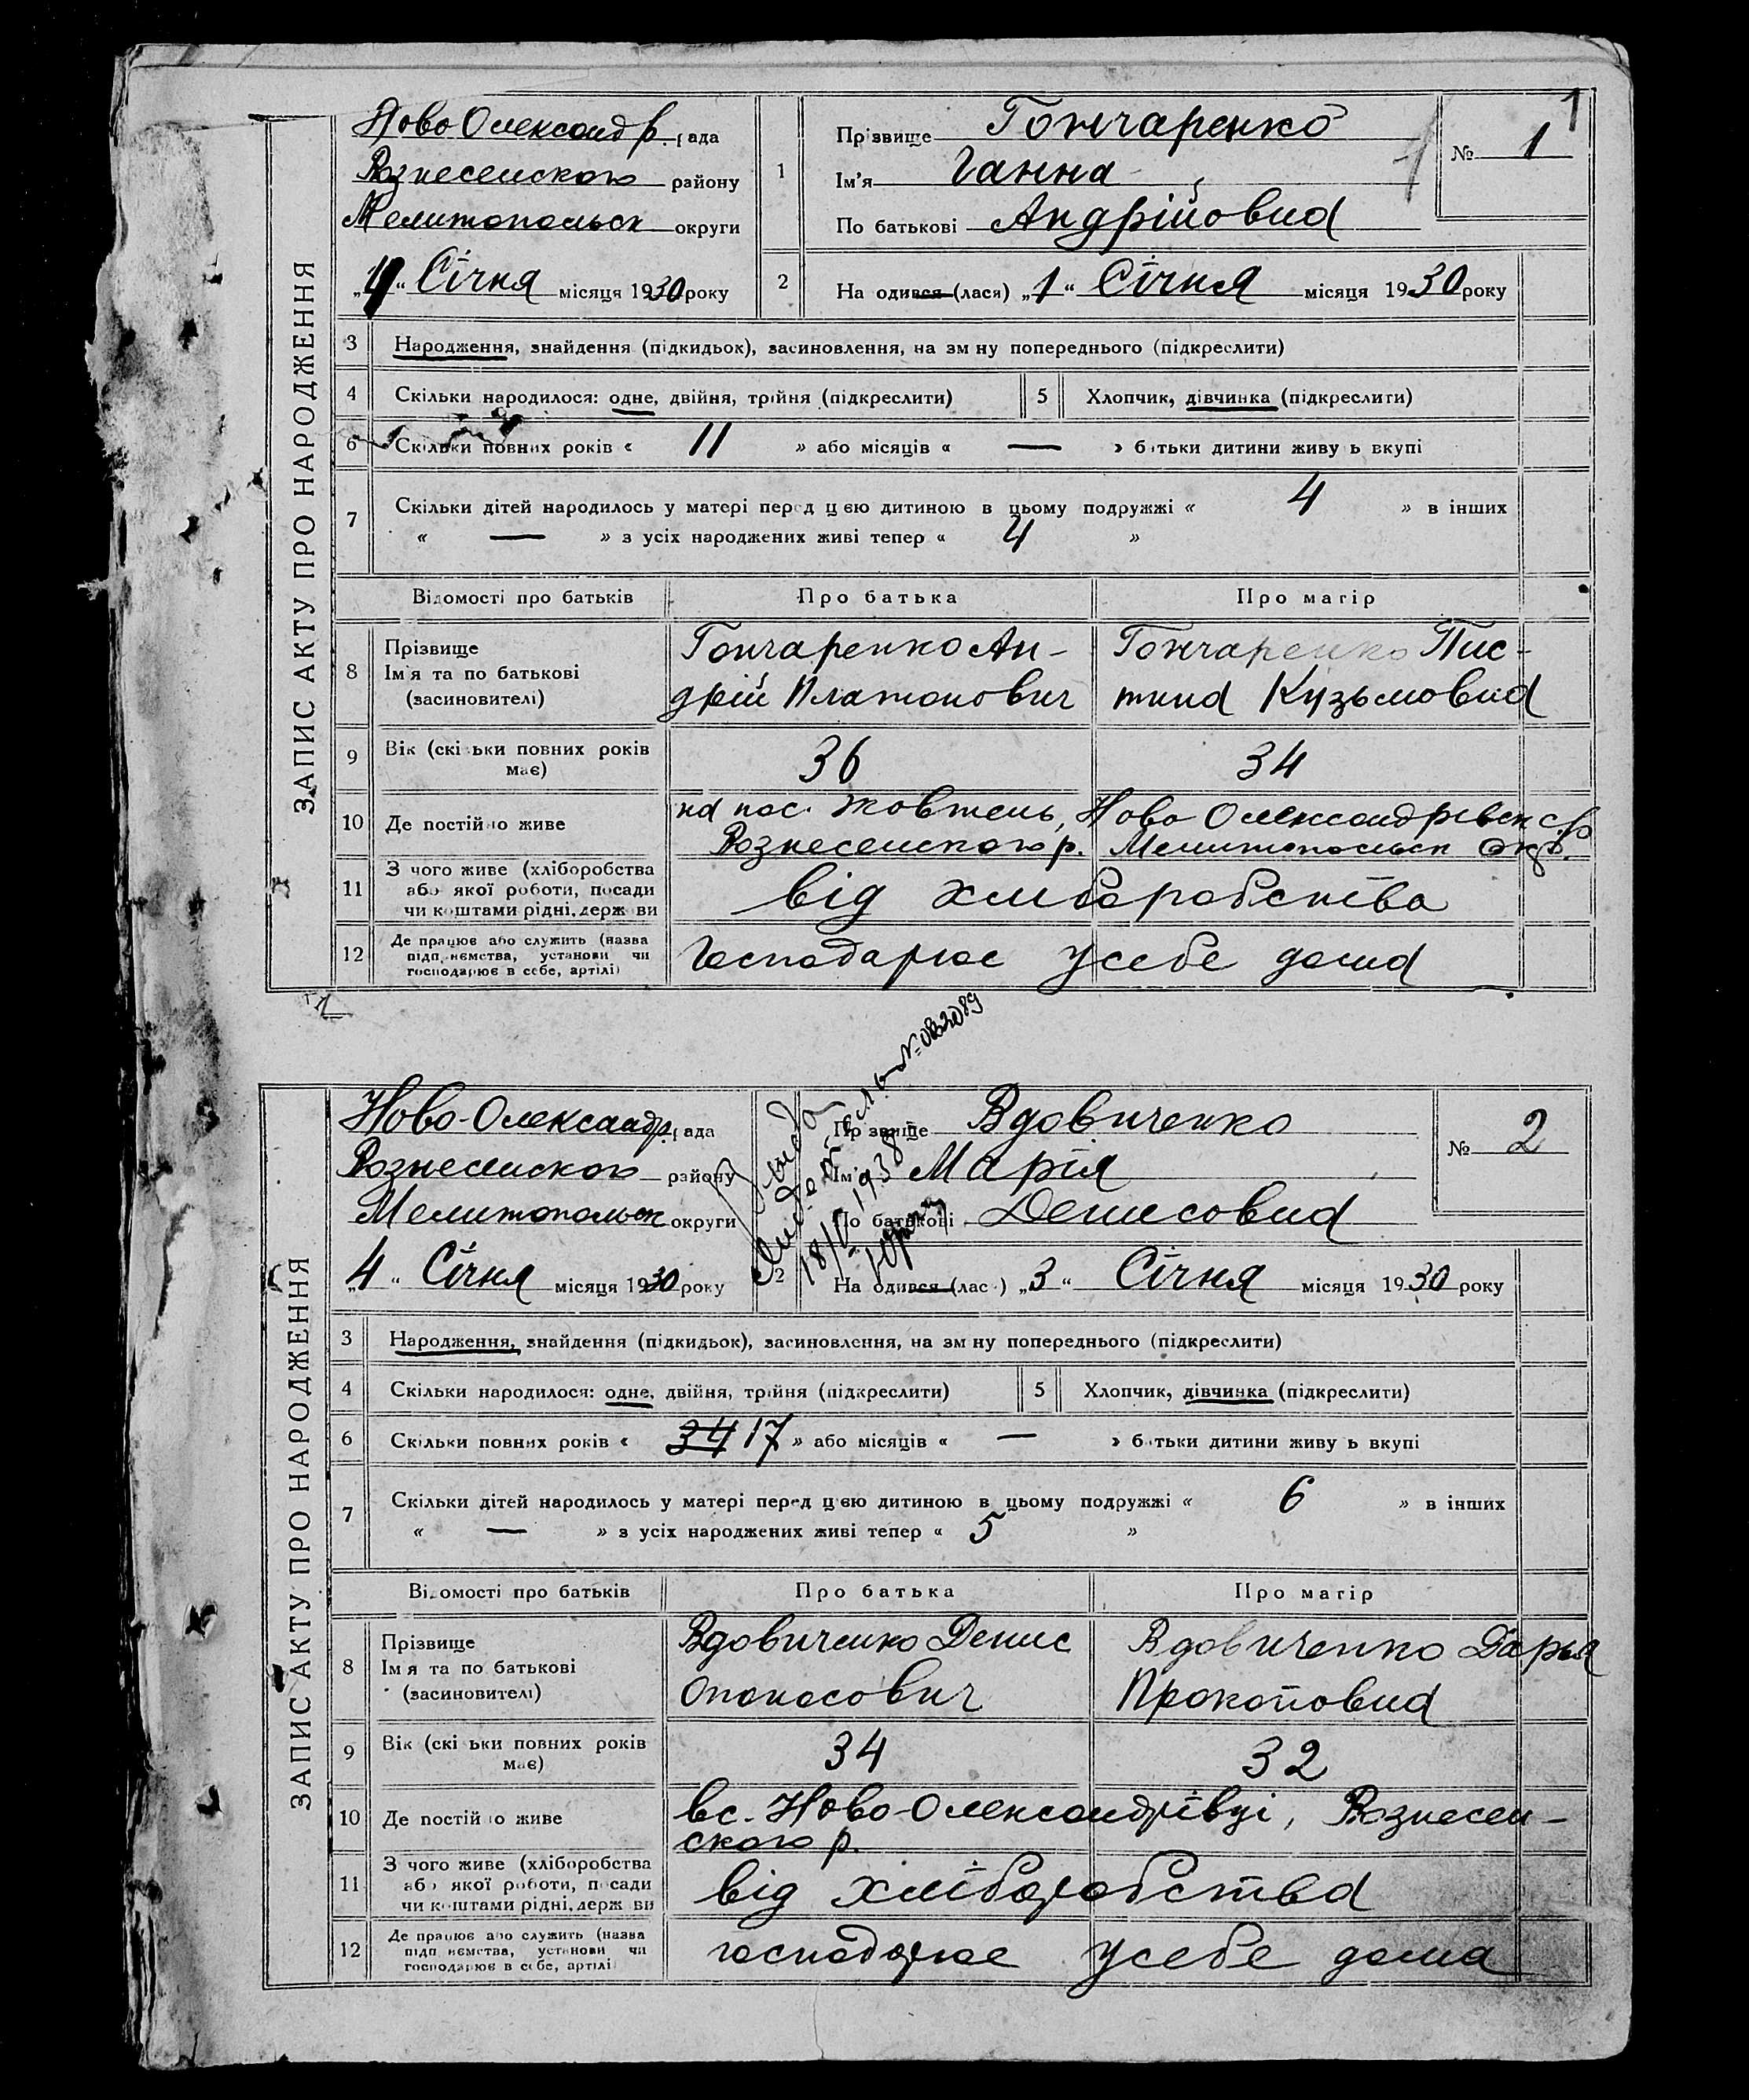 1
ЗАПИС АКТУ ПРО НАРОДЖЕННЯ
Ново Олександр. рада
Вознесенского району
Мелитопольск округи
„4“ Січня місяця 1930 року
1
Прізвище Гончаренко
Ім'я Ганна
По батькові Андрійовна
№ 1
2
На одився (лася) „1“ Січня місяця 1930 року
3 Народження, знайдення (підкидьок), засиновлення, на зм ну попереднього (підкреслити)
4 Скільки народилося: одне, двійня, трійня (підкреслити) 5 Хлопчик, дівчинка (підкреслити)
6 Скільки повних років « 11 » або місяців « — » батьки дитини живу ь вкупі
7 Скільки дітей народилось у матері перед цєю дитиною в цьому подружжі « 4 » в інших
« — » з усіх народжених живі тепер « 4 »
Відомості про батьків Про батька Про матір
8 Прізвище
Ім'я та по батькові
(засновителі)
Гончаренко Ан-
дрій Платонович
Гончаренко Пис-
тина Кузьмовна
9 Вік (скі ьки повних років
має)
36 34
10 Де постійно живе
на пос. Жовтень, Ново Олександрівск с/р
Вознесенского р. Мелитопольск окр.
11 З чого живе (хліборобства
або якої роботи, посади
чи коштами рідні, держ ви
від хліборобства
12 Де працює або служить (назва
підп, немства, установи чи
господарює в себе, артілі)
Господарює усебе дома
ЗАПИС АКТУ ПРО НАРОДЖЕННЯ
Ново-Олександр. рада
Вознесенского району
Мелитопольск округи
„4“ Січня місяця 1930 року
№ 032089
1938
Пр звище Вдовиченко
Ім' Марія
По батькові Денисовна
№ 2
2
На одився (лас ) „3“ Січня місяця 1930 року
3 Народження, знайдення (підкидьок), засиновлення, на зм ну попереднього (підкреслити)
4 Скільки народилося: одне, двійня, трійня (підкреслити) 5 Хлопчик, дівчинка (підкреслити)
6 Скільки повних років « 34 17 » або місяців « — » батьки дитини живу ь вкупі
7 Скільки дітей народилось у матері перед цєю дитиною в цьому подружжі « 6 » в інших
« — » з усіх народжених живі тепер « 5 »
Відомості про батьків Про батька Про матір
8 Прізвище
Ім я та по батькові
(засиновителі)
Вдовиченко Денис
Опонасович
Вдовиченко Дарья
Прокоповна
9 Вік (скі ьки повних років
має)
34 32
10 Де постій о живе
в с. Ново-Олександрівці, Вознесен-
ского р.
11 З чого живе (хліборобства
або якої роботи, посади
чи коштами рідні, держ ви
від хліборобства
12 Де працює або служить (назва
підп немства, установи чи
господарює в себе, артілі
господарює усебе дома